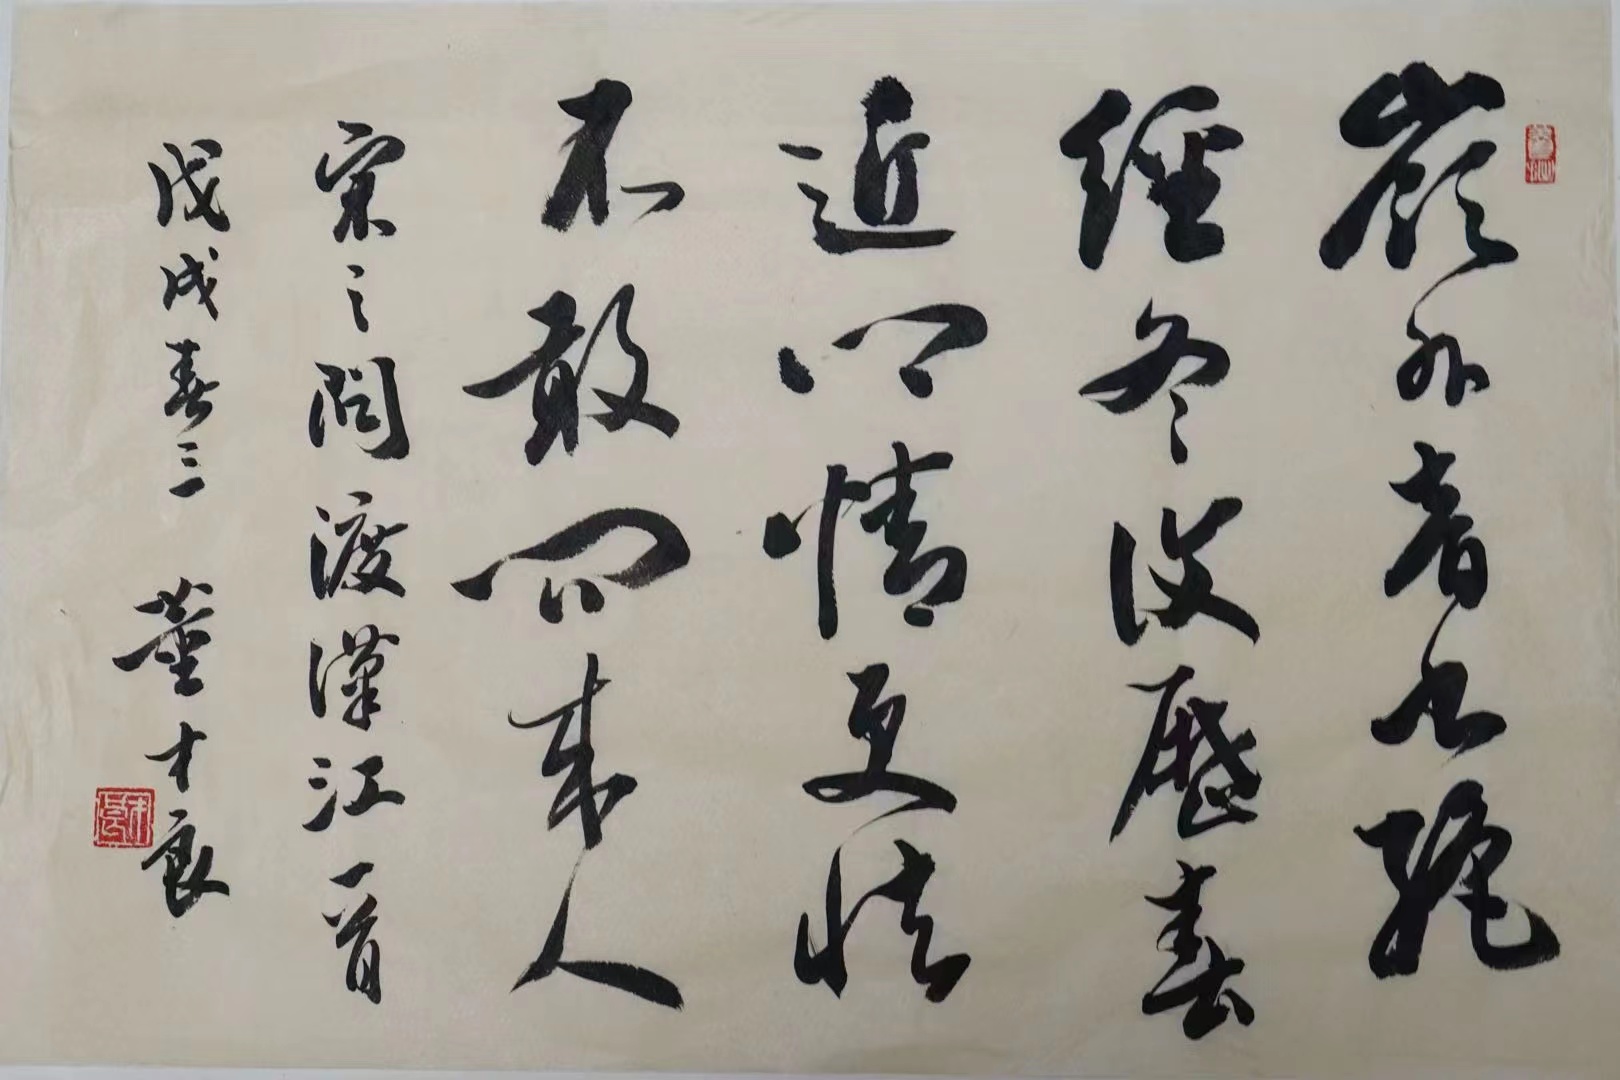 嶺外音書絶
經冬復歷春
近鄉情更怯
不敢問來人
宋之問渡漢江一首
戊戌春三 董才良